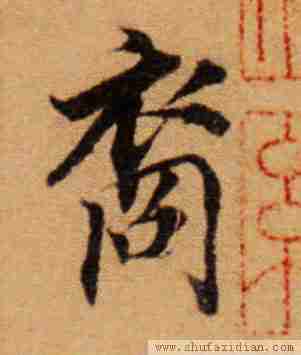 裔
www.shufazidian.com